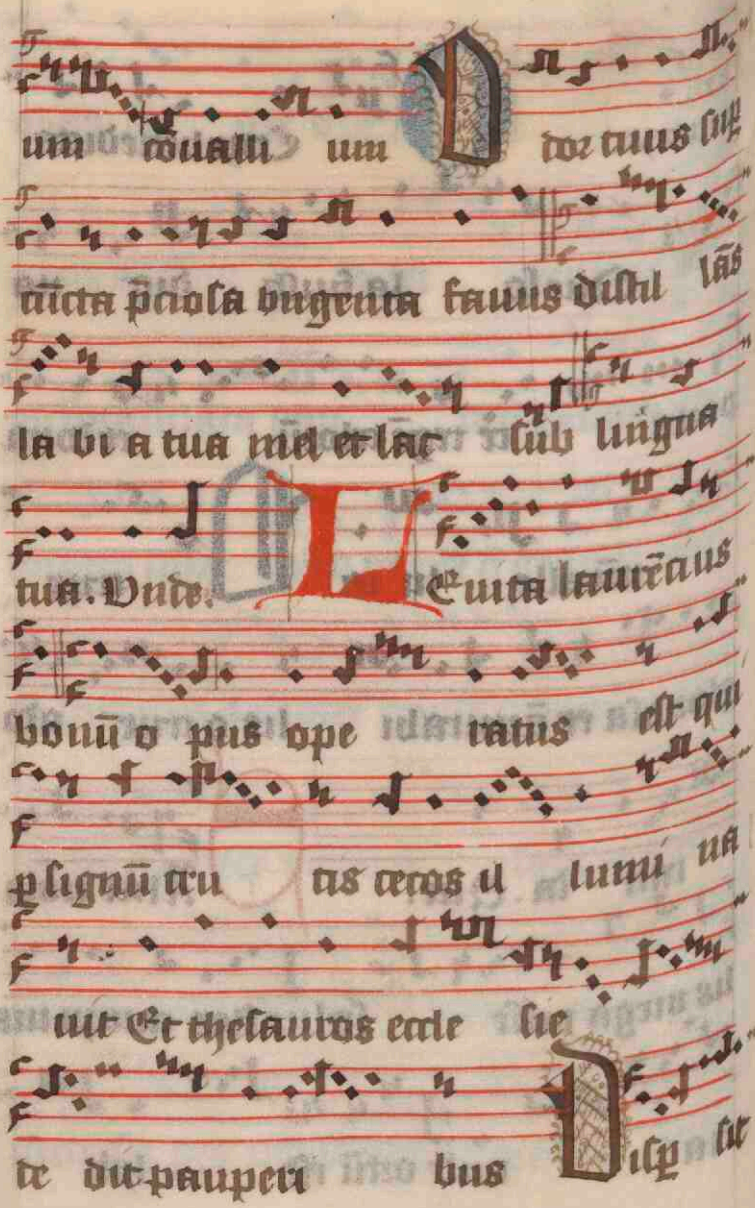 um cōualli um O dor tuus sup̄
cūcta p̄ciosa vngenta fauus distil lās
la bi a tua mel et lac sub lingua
tua. Vnde. LEuita laurēcius
bonū o pus ope ratus est qui
ꝑ signū cru cis cecos il lumi na
uit Et thesauros eccle sie
de dit pauperi bus Disꝑ sit